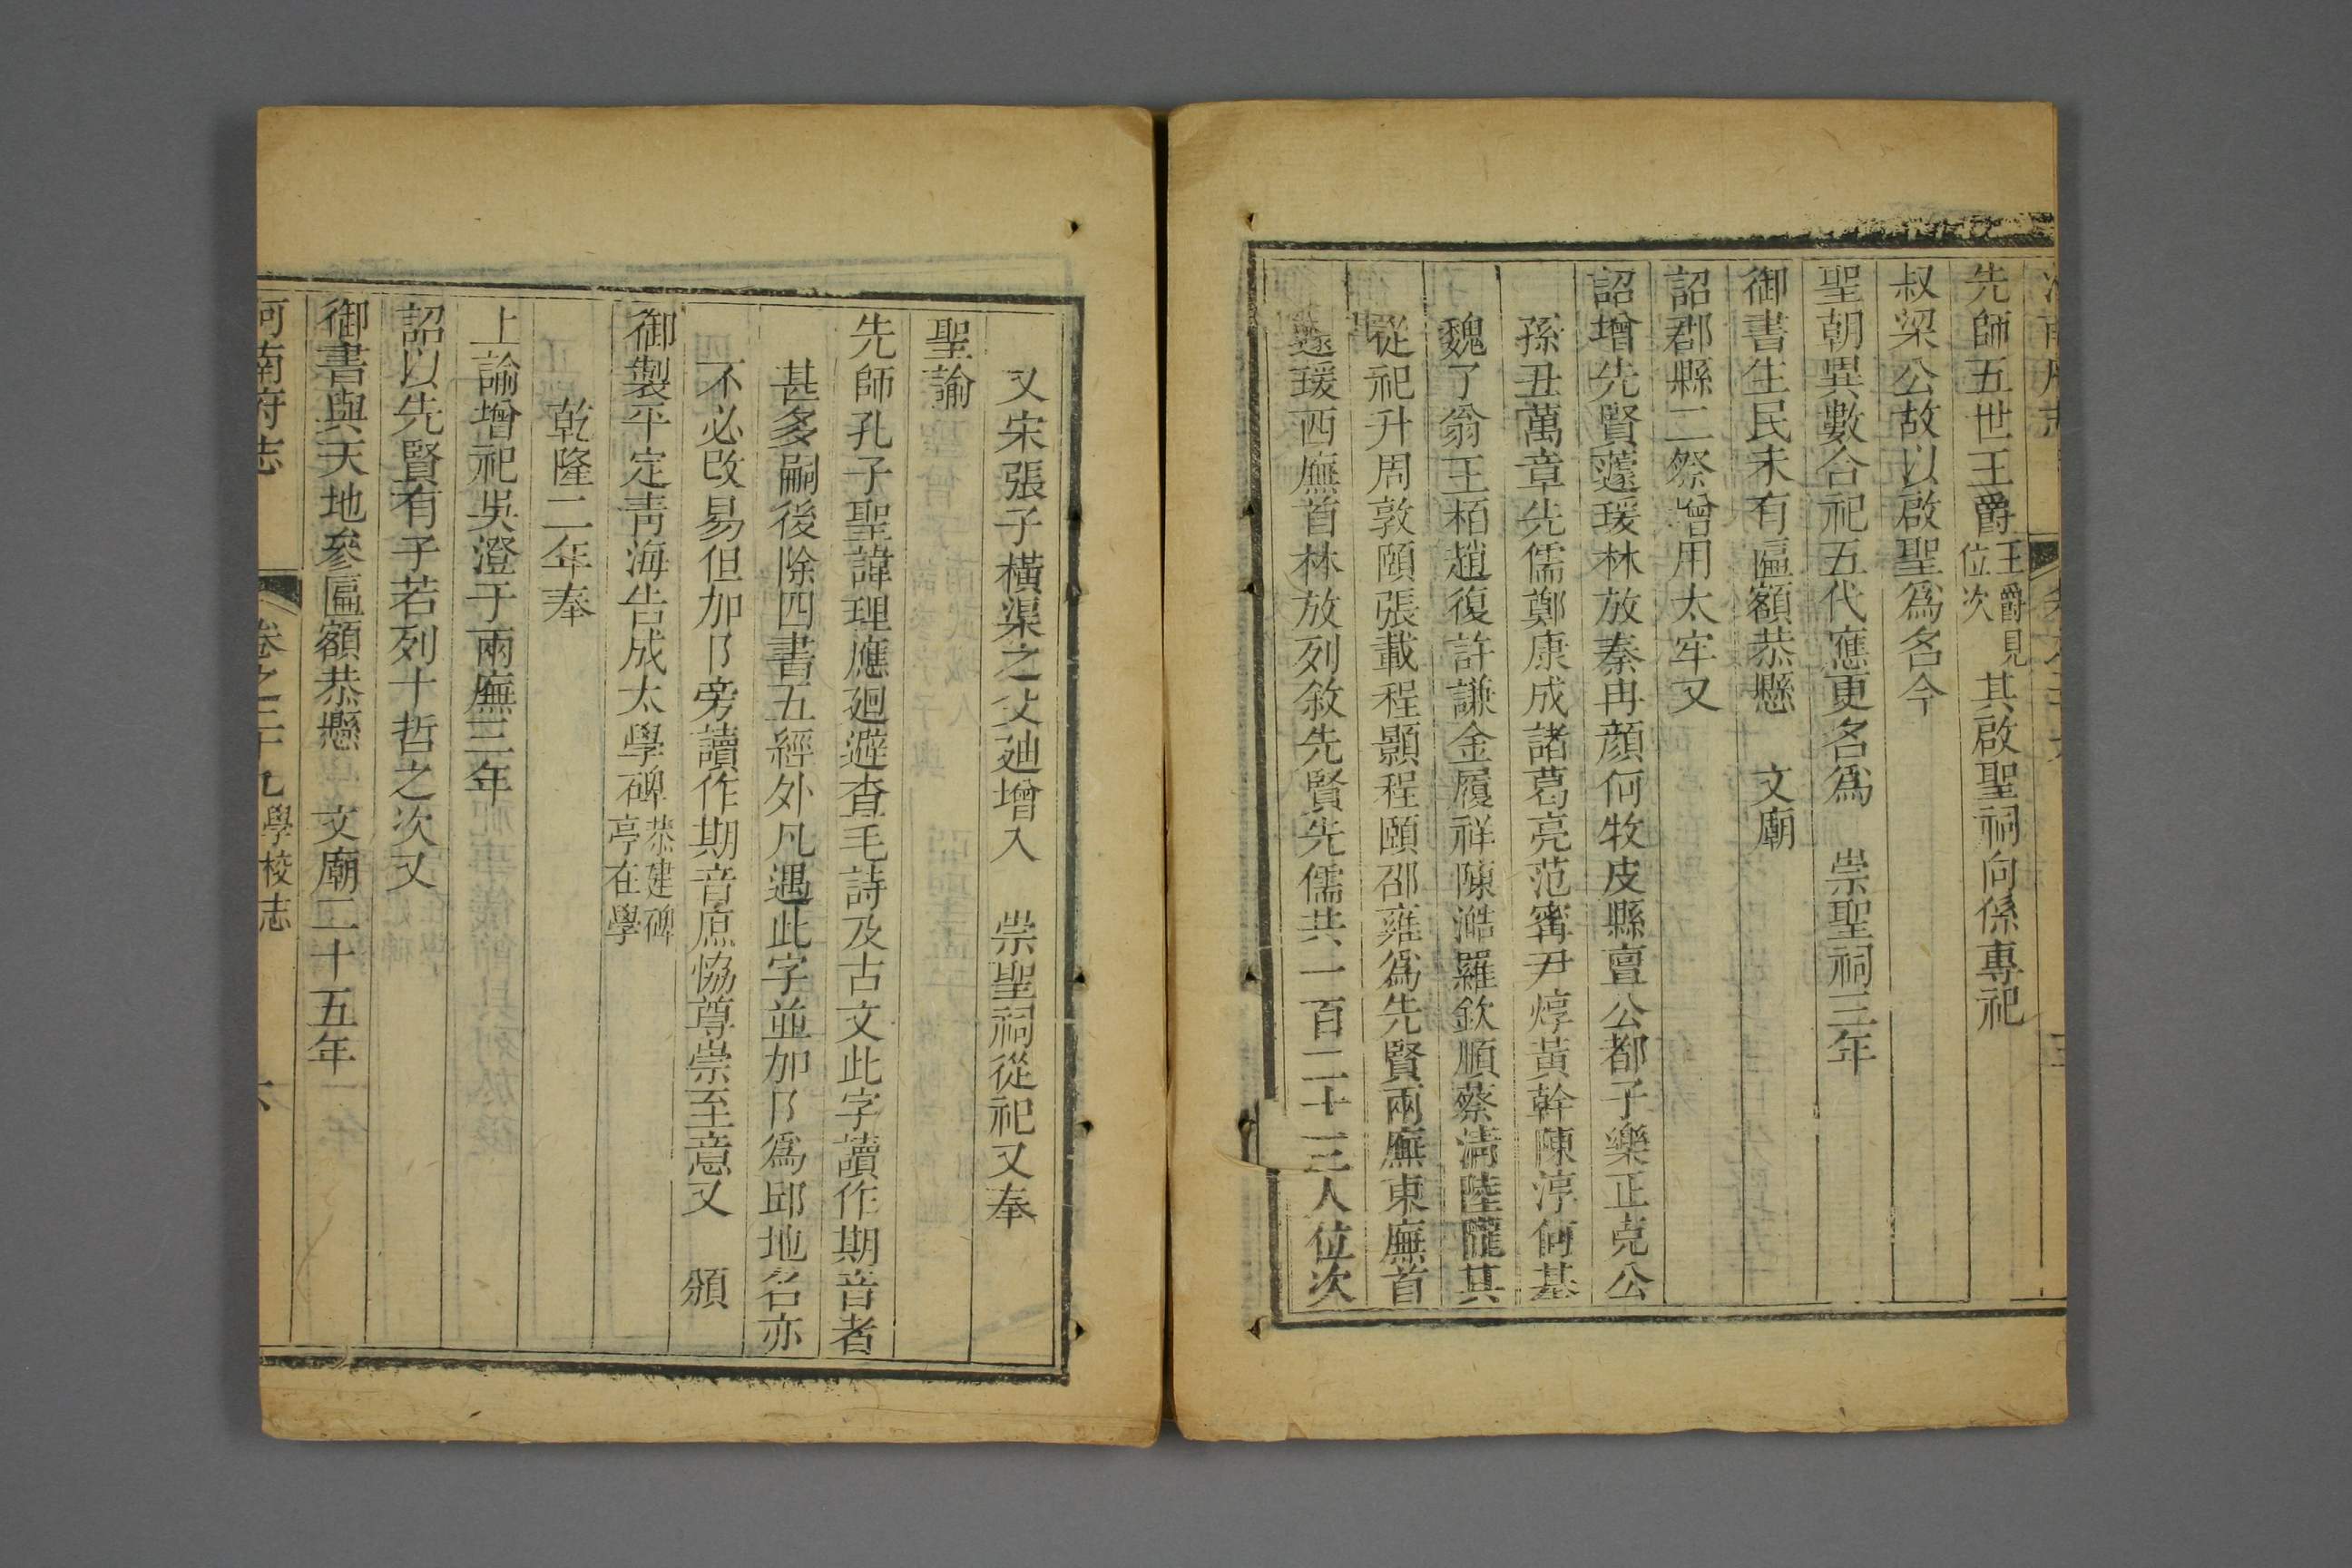 先師五世王爵王爵見位次其啟聖祠向係專祀
叔梁公故以啟聖爲名今
聖朝異數合祀五代應更名爲　崇聖祠三年
御書生民未有匾額恭懸　文廟
詔郡縣二祭增用太牢又
詔增先賢蘧瑗林放秦冉顏何牧皮縣亶公都子樂正克公
孫丑萬章先儒鄭康成諸葛亮范甯尹焞黃幹陳淳何基
魏了翁王栢趙復許謙金履祥陳澔羅欽順蔡清陸隴其
從祀升周敦頤張載程顥程頤邵雍爲先賢兩廡東廡首
蘧瑗西廡首林放列敘先賢先儒共一百二十三人位次
又宋張子橫渠之父廸增入　崇聖祠從祀又奉
聖諭
先師孔子聖諱理應廻避查毛詩及古文此字讀作期音者
甚多嗣後除四書五經外凡遇此字並加阝爲邱地名亦
不必改易但加阝旁讀作期音庶恊尊崇至意又　頒
御製平定靑海告成太學碑恭建碑亭在學
乾隆二年奉
上諭增祀吳澄于兩廡三年
詔以先賢有子若列十哲之次又
御書與天地參匾額恭懸　文廟二十五年
河南府志　卷之二十九　學校志　六